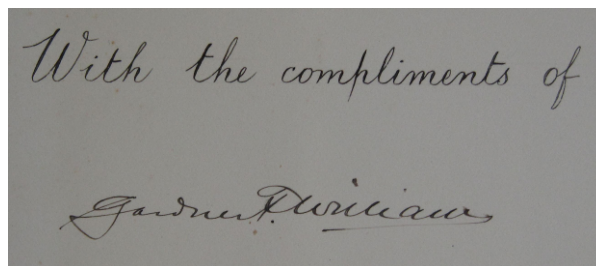 With the compliments of
Gardner F. Williams